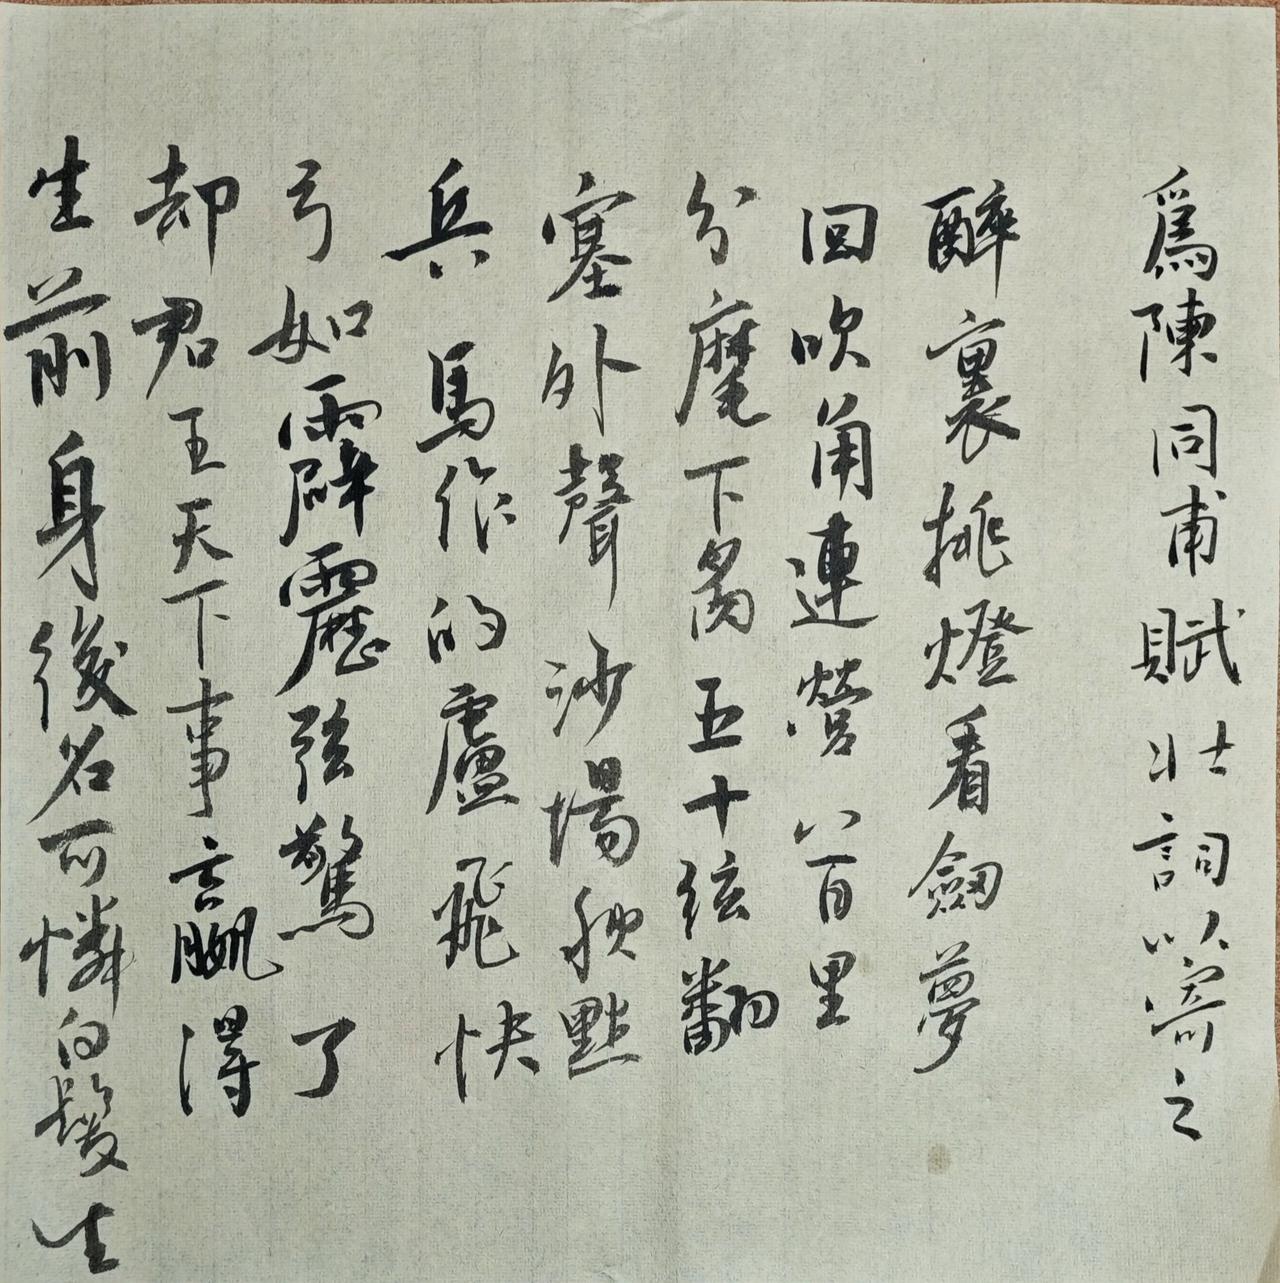 爲陳同甫賦壯詞以寄之
醉裏挑燈看劍夢
回吹角連營八百里
分麾下炙五十弦翻
塞外聲沙場秋點
兵馬作的盧飛快
弓如霹靂弦驚了
却君王天下事贏得
生前身後名可憐白髮生